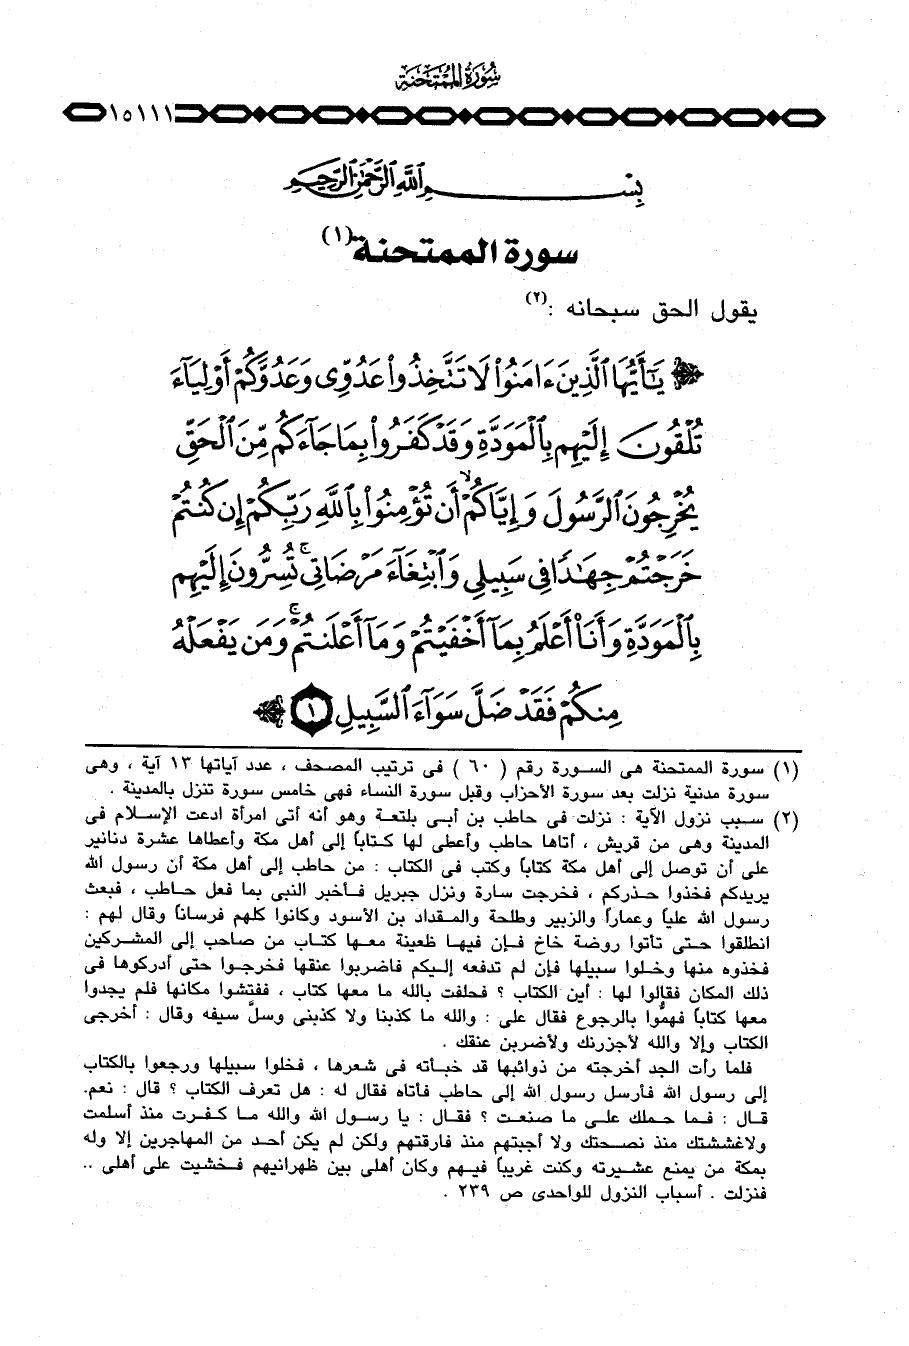 سُورَةُ المُمْتَحَنَة
١٥١١١
بِسْمِ اللَّهِ الرَّحْمَٰنِ الرَّحِيمِ
سورة الممتحنة (١)
يقول الحق سبحانه : (٢)
﴿ يَٰٓأَيُّهَا ٱلَّذِينَ ءَامَنُوا۟ لَا تَتَّخِذُوا۟ عَدُوِّى وَعَدُوَّكُمْ أَوْلِيَآءَ
تُلْقُونَ إِلَيْهِم بِٱلْمَوَدَّةِ وَقَدْ كَفَرُوا۟ بِمَا جَآءَكُم مِّنَ ٱلْحَقِّ
يُخْرِجُونَ ٱلرَّسُولَ وَإِيَّاكُمْ ۙ أَن تُؤْمِنُوا۟ بِٱللَّهِ رَبِّكُمْ إِن كُنتُمْ
خَرَجْتُمْ جِهَٰدًا فِى سَبِيلِى وَٱبْتِغَآءَ مَرْضَاتِى ۚ تُسِرُّونَ إِلَيْهِم
بِٱلْمَوَدَّةِ وَأَنَا۠ أَعْلَمُ بِمَآ أَخْفَيْتُمْ وَمَآ أَعْلَنتُمْ ۚ وَمَن يَفْعَلْهُ
مِنكُمْ فَقَدْ ضَلَّ سَوَآءَ ٱلسَّبِيلِ ١ ﴾
(١) سورة الممتحنة هى السورة رقم ( ٦٠ ) فى ترتيب المصحف ، عدد آياتها ١٣ آية ، وهى
سورة مدنية نزلت بعد سورة الأحزاب وقبل سورة النساء فهى خامس سورة تنزل بالمدينة .
(٢) سبب نزول الآية : نزلت فى حاطب بن أبى بلتعة وهو أنه أتى امرأة ادعت الإسلام فى
المدينة وهى من قريش ، أتاها حاطب وأعطى لها كتاباً إلى أهل مكة وأعطاها عشرة دنانير
على أن توصل إلى أهل مكة كتاباً وكتب فى الكتاب : من حاطب إلى أهل مكة أن رسول الله
يريدكم فخذوا حذركم ، فخرجت سارة ونزل جبريل فأخبر النبى بما فعل حاطب ، فبعث
رسول الله علياً وعماراً والزبير وطلحة والمقداد بن الأسود وكانوا كلهم فرساناً وقال لهم :
انطلقوا حتى تأتوا روضة خاخ فإن فيها ظعينة معها كتاب من صاحب إلى المشركين
فخذوه منها وخلوا سبيلها فإن لم تدفعه إليكم فاضربوا عنقها فخرجوا حتى أدركوها فى
ذلك المكان فقالوا لها : أين الكتاب ؟ فحلفت بالله ما معها كتاب ، ففتشوا مكانها فلم يجدوا
معها كتاباً فهمُّوا بالرجوع فقال على : والله ما كذبنا ولا كذبنى وسلَّ سيفه وقال : أخرجى
الكتاب وإلا والله لأجزرنك ولأضربن عنقك .
فلما رأت الجد أخرجته من ذوائبها قد خبأته فى شعرها ، فخلوا سبيلها ورجعوا بالكتاب
إلى رسول الله فأرسل رسول الله إلى حاطب فأتاه فقال له : هل تعرف الكتاب ؟ قال : نعم.
قال : فما حملك على ما صنعت ؟ فقال : يا رسول الله والله ما كفرت منذ أسلمت
ولاغششتك منذ نصحتك ولا أجبتهم منذ فارقتهم ولكن لم يكن أحد من المهاجرين إلا وله
بمكة من يمنع عشيرته وكنت غريباً فيهم وكان أهلى بين ظهرانيهم فخشيت على أهلى ..
فنزلت . أسباب النزول للواحدى ص ٢٣٩ .